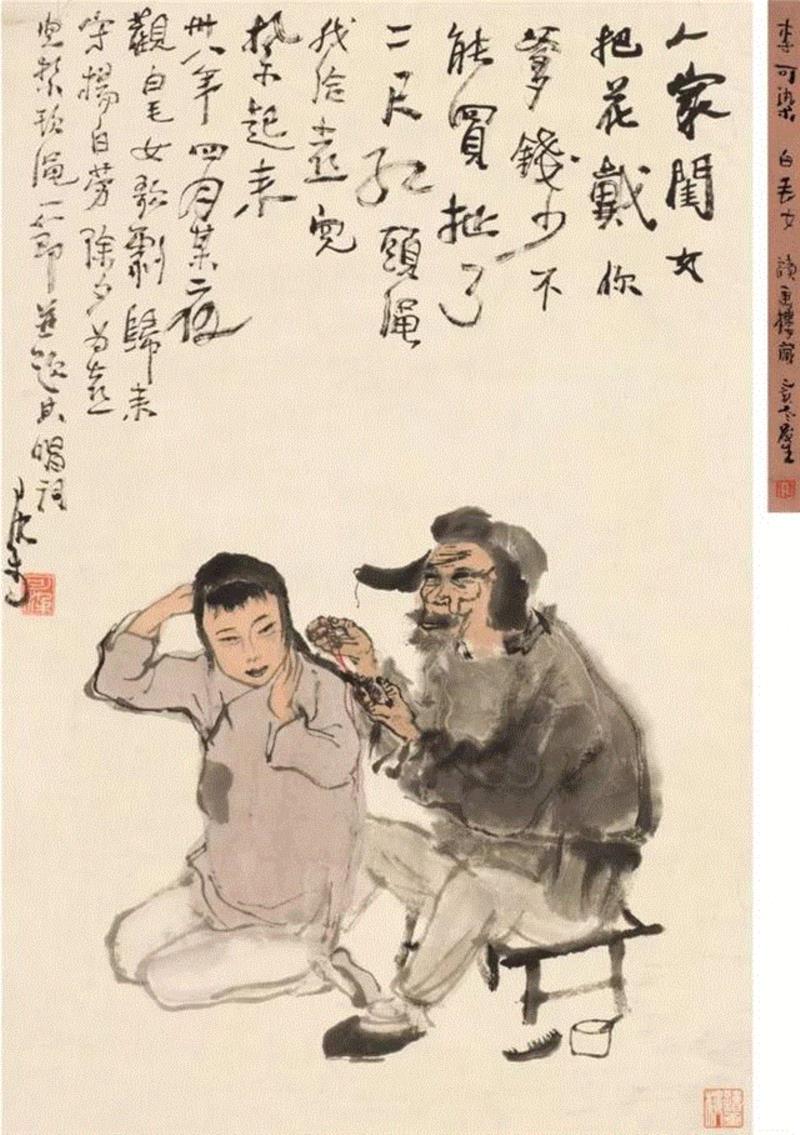 李可染 白毛女
人家閨女
把花戴你
爹錢少不
能買扯了
二尺紅頭繩
我給喜兒
紮起来
卅八年四月某夜
觀白毛女歌劇歸来
寫楊白勞除夕為喜
兒紮頭繩一節並題其唱詞
可染